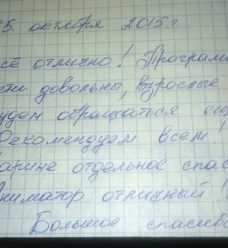 5. октября 2015 г
всё отлично! Програм
ети довольны, взрослые
удем обращаться ещ
Рекомендуем всем!
арине отдельное спас
ниматор отличный!
Большое спасибо